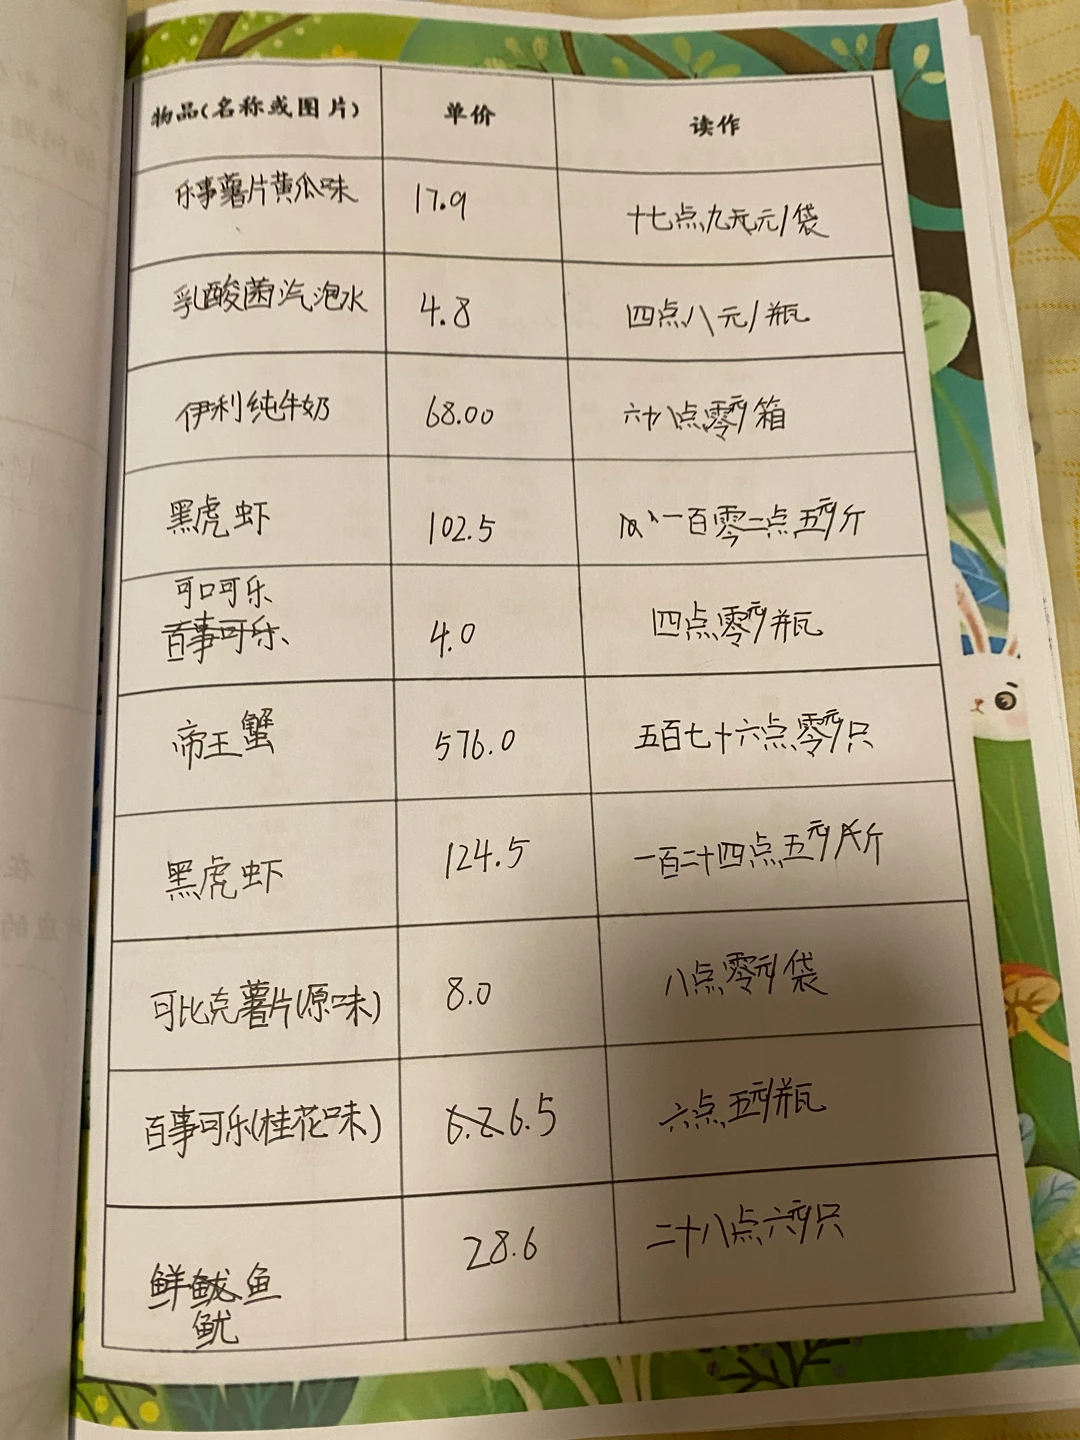 物品(名称或图片) 单价 读作
乐事薯片黄瓜味 17.9 十七点九元/袋
乳酸菌汽泡水 4.8 四点八元/瓶
伊利纯牛奶 68.00 六十八点零元/箱
黑虎虾 102.5 一百零二点五元/斤
可口可乐
百事可乐 4.0 四点零元/瓶
帝王蟹 576.0 五百七十六点零元/只
黑虎虾 124.5 一百二十四点五元/斤
可比克薯片(原味) 8.0 八点零元/袋
百事可乐(桂花味) 6.2 6.5 六点五元/瓶
鲜鱿鱼 28.6 二十八点六元/只
鱿